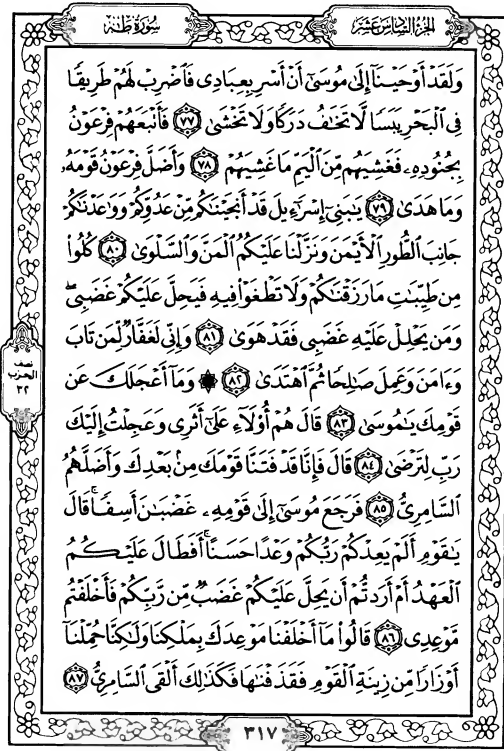 سُورَةُ طٰهٰ
الجزء السادس عشر
وَلَقَدْ أَوْحَيْنَآ إِلَىٰ مُوسَىٰٓ أَنْ أَسْرِ بِعِبَادِى فَٱضْرِبْ لَهُمْ طَرِيقًا
فِى ٱلْبَحْرِ يَبَسًا لَّا تَخَٰفُ دَرَكًا وَلَا تَخْشَىٰ ٧٧ فَأَتْبَعَهُمْ فِرْعَوْنُ
بِجُنُودِهِۦ فَغَشِيَهُم مِّنَ ٱلْيَمِّ مَا غَشِيَهُمْ ٧٨ وَأَضَلَّ فِرْعَوْنُ قَوْمَهُۥ
وَمَا هَدَىٰ ٧٩ يَٰبَنِىٓ إِسْرَٰٓءِيلَ قَدْ أَنجَيْنَٰكُم مِّنْ عَدُوِّكُمْ وَوَٰعَدْنَٰكُمْ
جَانِبَ ٱلطُّورِ ٱلْأَيْمَنَ وَنَزَّلْنَا عَلَيْكُمُ ٱلْمَنَّ وَٱلسَّلْوَىٰ ٨٠ كُلُوا۟
مِن طَيِّبَٰتِ مَا رَزَقْنَٰكُمْ وَلَا تَطْغَوْا۟ فِيهِ فَيَحِلَّ عَلَيْكُمْ غَضَبِى ۖ
وَمَن يَحْلِلْ عَلَيْهِ غَضَبِى فَقَدْ هَوَىٰ ٨١ وَإِنِّى لَغَفَّارٌ لِّمَن تَابَ
وَءَامَنَ وَعَمِلَ صَٰلِحًا ثُمَّ ٱهْتَدَىٰ ٨٢ ۞ وَمَآ أَعْجَلَكَ عَن
قَوْمِكَ يَٰمُوسَىٰ ٨٣ قَالَ هُمْ أُو۟لَآءِ عَلَىٰٓ أَثَرِى وَعَجِلْتُ إِلَيْكَ
رَبِّ لِتَرْضَىٰ ٨٤ قَالَ فَإِنَّا قَدْ فَتَنَّا قَوْمَكَ مِنۢ بَعْدِكَ وَأَضَلَّهُمُ
ٱلسَّامِرِىُّ ٨٥ فَرَجَعَ مُوسَىٰٓ إِلَىٰ قَوْمِهِۦ غَضْبَٰنَ أَسِفًا ۚ قَالَ
يَٰقَوْمِ أَلَمْ يَعِدْكُمْ رَبُّكُمْ وَعْدًا حَسَنًا ۚ أَفَطَالَ عَلَيْكُمُ
ٱلْعَهْدُ أَمْ أَرَدتُّمْ أَن يَحِلَّ عَلَيْكُمْ غَضَبٌ مِّن رَّبِّكُمْ فَأَخْلَفْتُم
مَّوْعِدِى ٨٦ قَالُوا۟ مَآ أَخْلَفْنَا مَوْعِدَكَ بِمَلْكِنَا وَلَٰكِنَّا حُمِّلْنَآ
أَوْزَارًا مِّن زِينَةِ ٱلْقَوْمِ فَقَذَفْنَٰهَا فَكَذَٰلِكَ أَلْقَى ٱلسَّامِرِىُّ ٨٧
نصف
الحزب
٣٢
٣١٧